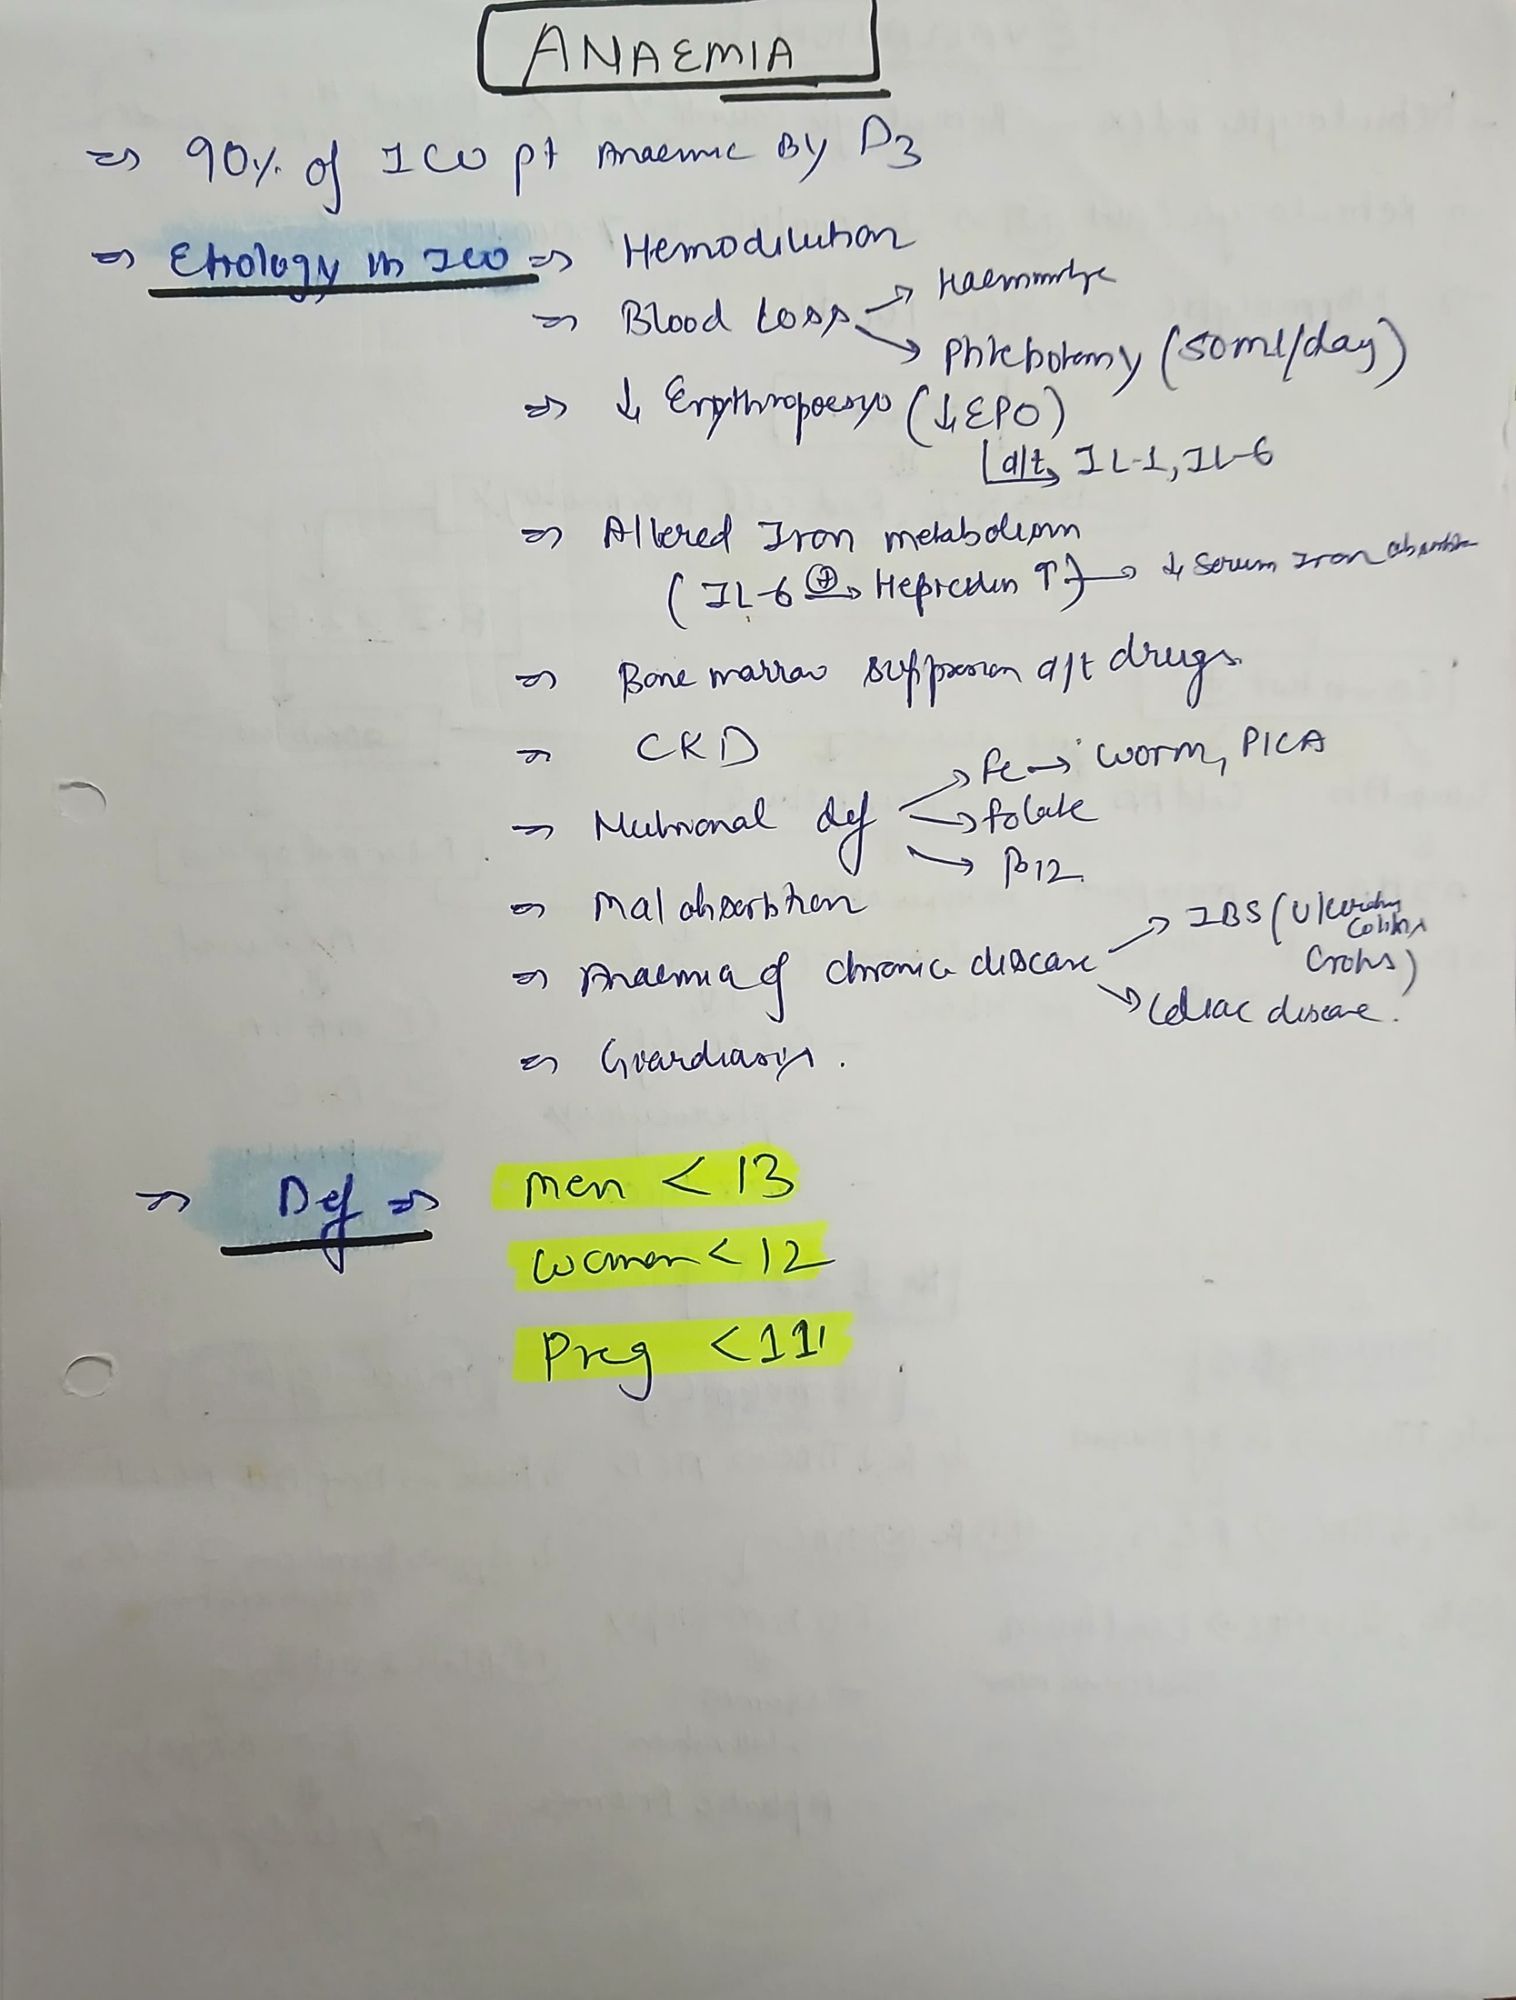 ANAEMIA
⇒ 90% of ICU pt Anaemic By D3
⇒ Etiology in ICU ⇒ Hemodilution
⇒ Blood Loss → Haemmrhge
→ Phlebotomy (50ml/day)
⇒ ↓ Erythropoesys (↓EPO)
d/t → IL-1, IL-6
⇒ Altered Iron metabolism
(IL-6 ⊕→ Hepcedin ↑) → ↓ Serum Iron
⇒ Bone marrow suppression d/t drugs.
⇒ CKD
⇒ Nutrional def → Fe → worm, PICA
→ folate
→ B12
⇒ Malabsorbtion
⇒ Anaemia of chronic disease → IBS (Ulcerative Colitis, Crohs)
→ Celiac disease.
⇒ Giardiasis.
⇒ Def ⇒ Men < 13
Women < 12
Preg < 11